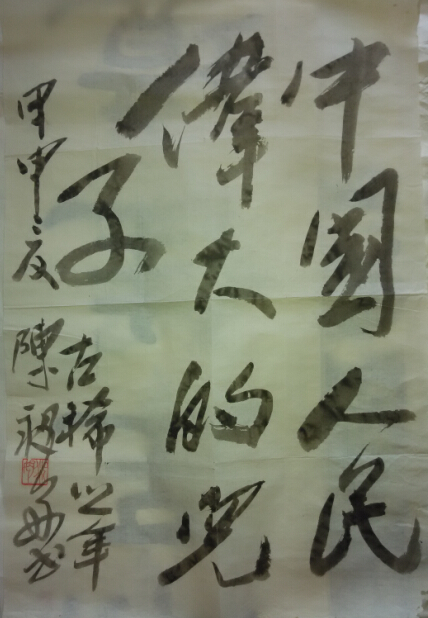 中國人民
偉大的兒
子
古稀之年
甲申 陳 書